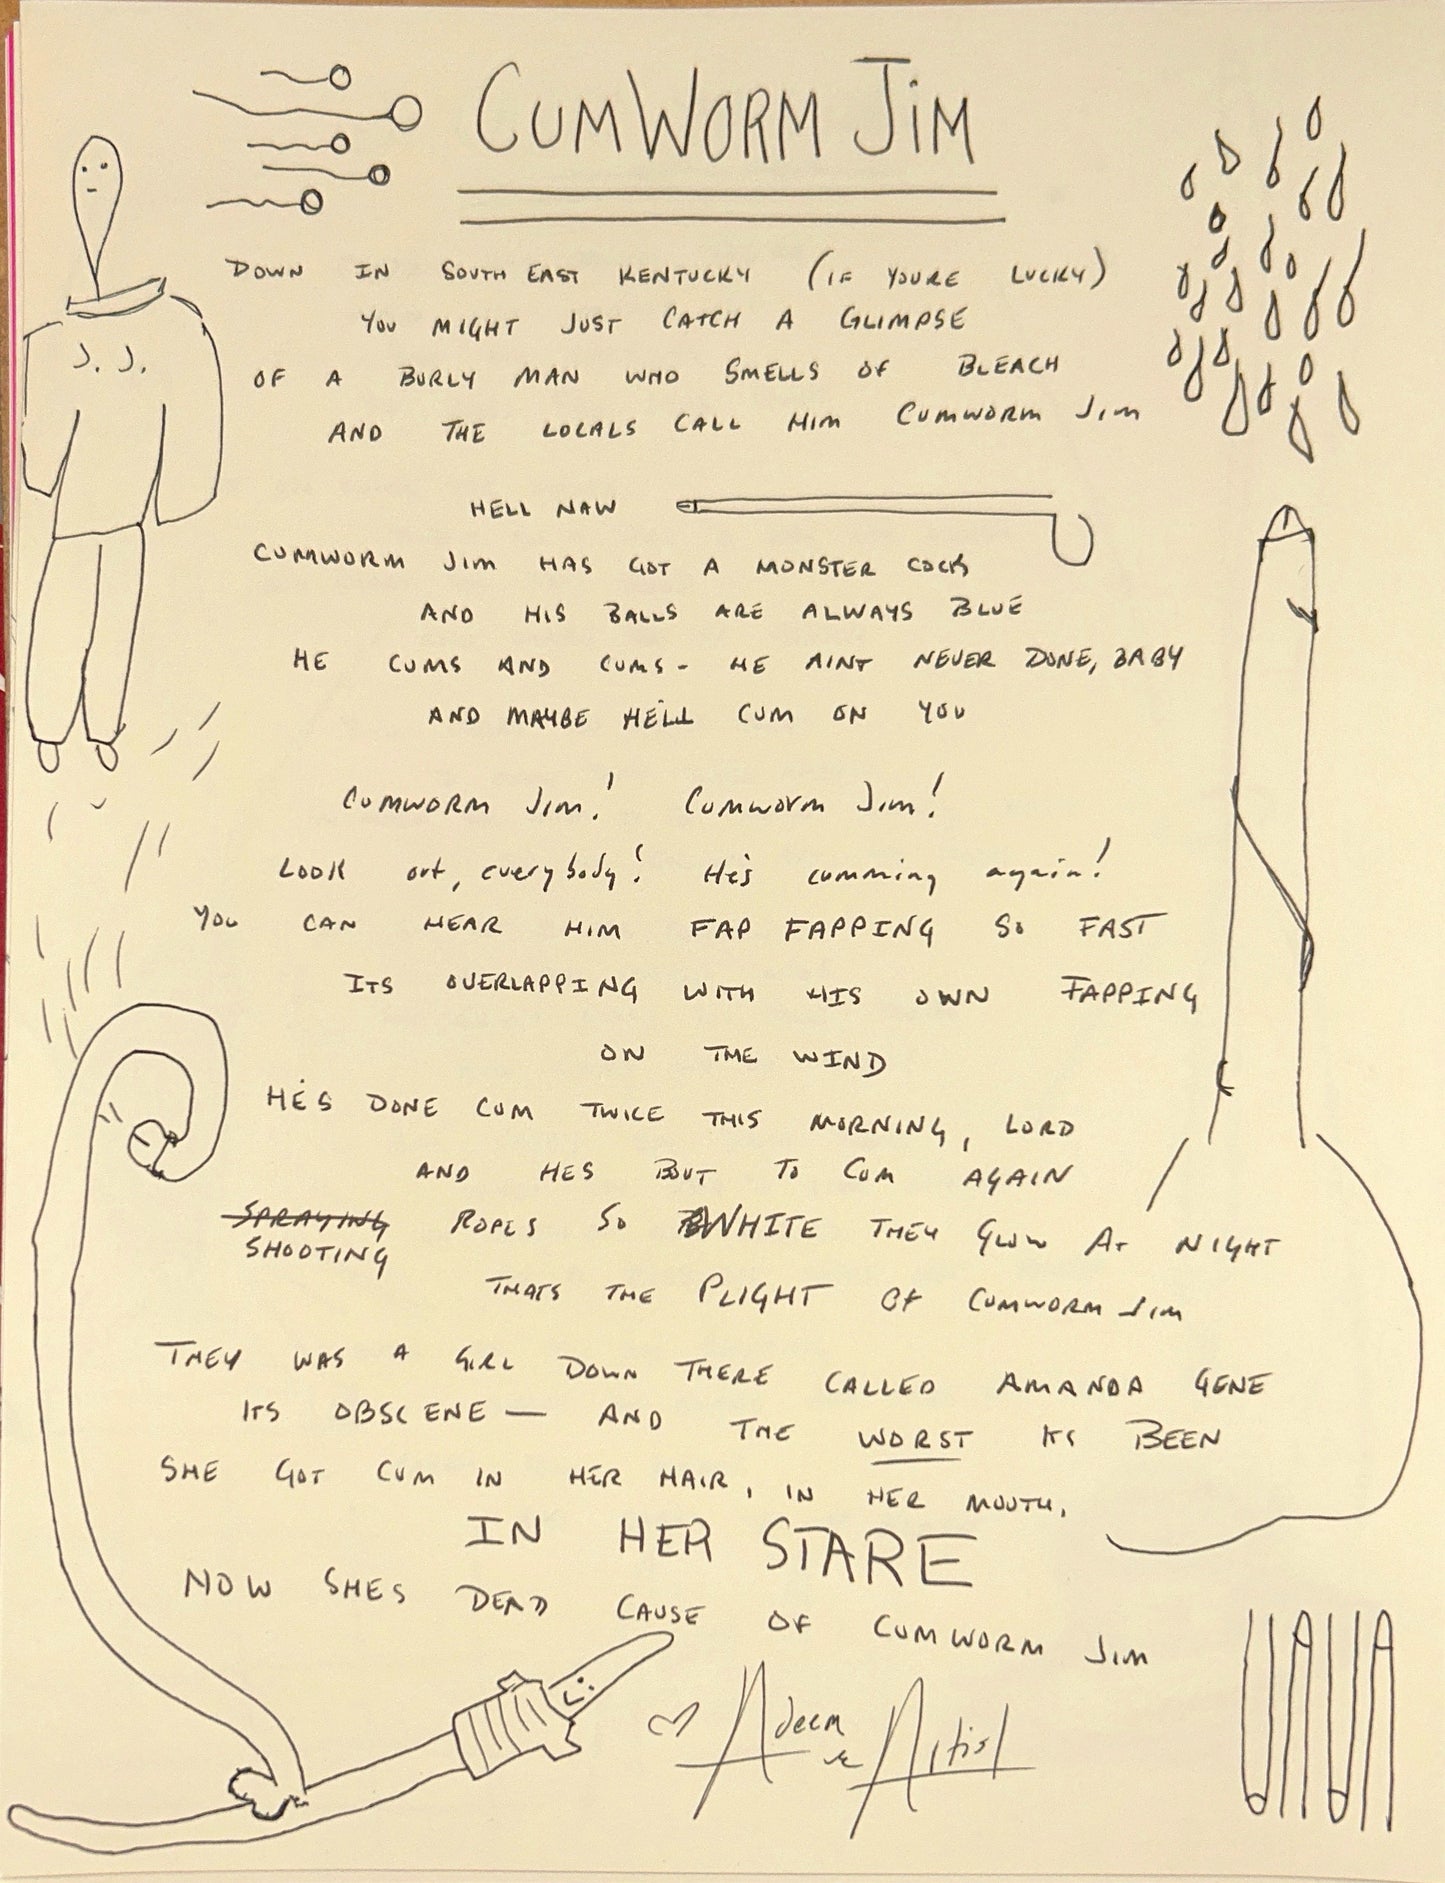 CUMWORM JIM
DOWN IN SOUTH EAST KENTUCKY (IF YOURE LUCKY)
YOU MIGHT JUST CATCH A GLIMPSE
OF A BURLY MAN WHO SMELLS OF BLEACH
AND THE LOCALS CALL HIM CUMWORM JIM
J. J.
HELL NAW
CUMWORM JIM HAS GOT A MONSTER COCK
AND HIS BALLS ARE ALWAYS BLUE
HE CUMS AND CUMS - HE AINT NEVER DONE, BABY
AND MAYBE HE'LL CUM ON YOU
CUMWORM JIM! CUMWORM JIM!
LOOK out, everybody! He's cumming again!
YOU CAN HEAR HIM FAP FAPPING SO FAST
ITS OVERLAPPING WITH HIS OWN FAPPING
ON THE WIND
HE'S DONE CUM TWICE THIS MORNING, LORD
AND HES BOUT TO CUM AGAIN
SPRAYING ROPES SO WHITE THEY GLOW AT NIGHT
SHOOTING
THATS THE PLIGHT OF CUMWORM JIM
THEY WAS A GIRL DOWN THERE CALLED AMANDA GENE
ITS OBSCENE — AND THE WORST ITS BEEN
SHE GOT CUM IN HER HAIR, IN HER MOUTH,
IN HER STARE
NOW SHES DEAD CAUSE OF CUMWORM JIM
Adeem the Artist